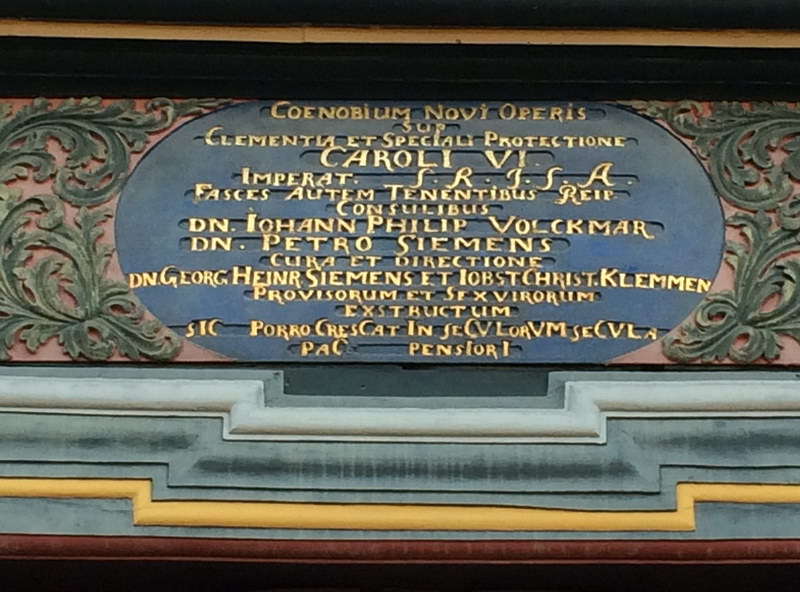 COENOBIUM NOVI OPERIS
SUB
CLEMENTIA ET SPECIALI PROTECTIONE
CAROLI VI.
IMPERAT. S. R. I. S. A.
FASCES AUTEM TENENTIBUS REIP.
CONSULIBUS
DN. IOHANN PHILIP VOLCKMAR
DN. PETRO SIEMENS
CURA ET DIRECTIONE
DN. GEORG HEINR SIEMENS ET IOBST CHRIST. KLEMMEN
PROVISORUM ET SEXVIRORUM
EXSTRUCTUM
SIC PORRO CRESCAT IN SECULORVM SECULA
PAC PENSIORI